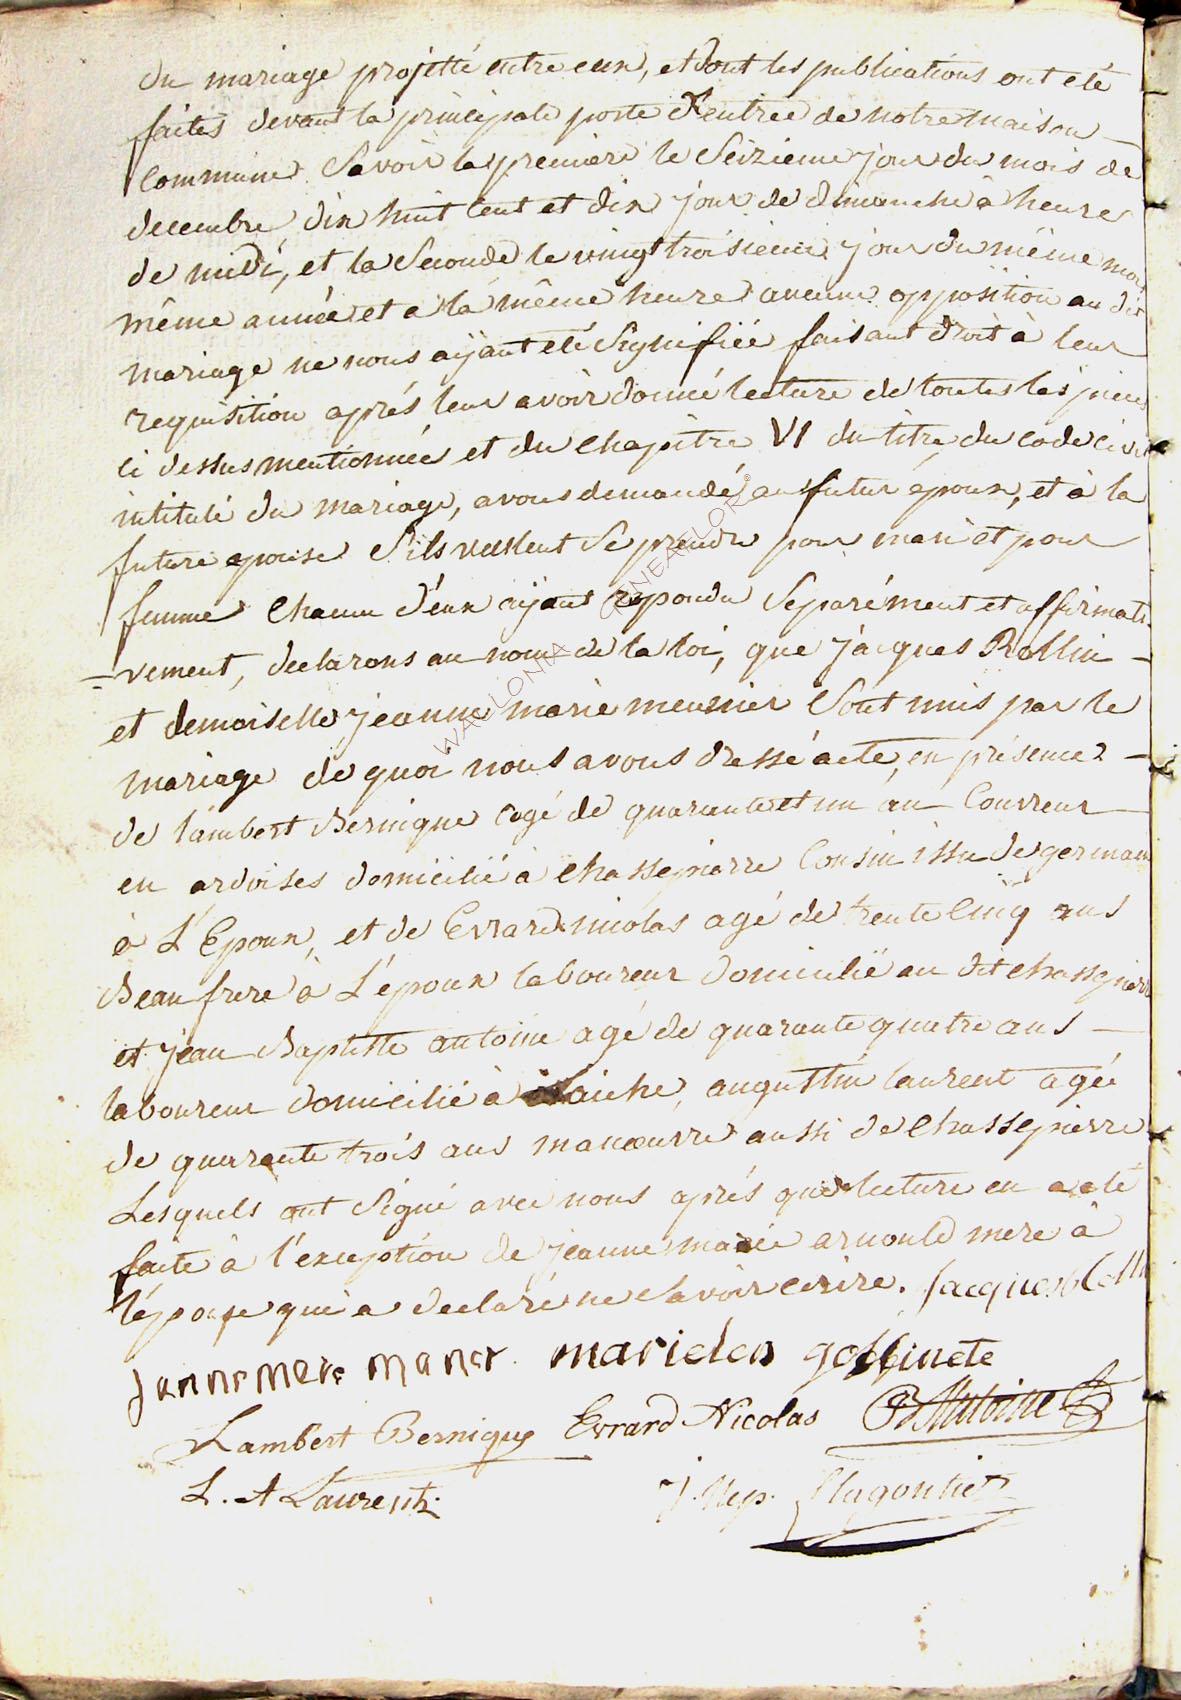 du mariage projetté entre eux, et dont les publications ont eté
faites devant la principale porte d'entrée de notre maison
commune Savoir la premiere le Seizieme jour du mois de
decembre dix huit cent et dix jour de dimanche à heure
de midi, et la Seconde le vingt troisieme jour du même mois
même année et a la même heure aucune opposition au dit
mariage ne nous aÿant eté Signifiée faisant droit à leur
requisition aprés leur avoir donné lecture de toutes les pieces
ci dessus mentionnée et du chapitre VI du titre du code civil
intitulé du mariage, avons demandé au futur époux, et à la
future epouse S'ils veullent Se prendre pour mari et pour
femme chacun d'eux aÿant repondu Separément et affirmati
-vement, declarons au nom de la loi, que jacques Rollin
et demoiselle jeanne marie meunier Sont unis par le
mariage de quoi nous avons dressé acte, en présence
de lambert Bernique agé de quarante et un an Couvreur
en ardoises domicilié à chassepierre Cousin issu de germain
à L'Epoux, et de Evrard nicolas agé de trente Cinq ans
Beau frere à L'époux laboureur domicilié au dit chassepierre
et jean Baptiste antoine agé de quarante quatre ans
laboureur domicilié à laiche, augustin laurent agée
de quarante trois ans manœuvre aussi de chassepierre
Lesquels ont Signé avec nous aprés que lecture en a eté
faite à l'exception de jeanne marie arnould mere à
l'épouse qui a declaré ne Savoir ecrire. Jacques Rollin
marieden goffinete
Lambert Bernique Evrard Nicolas JB Antoine
L. A Laurent
J. Nep.
WALLONIA GENEALOR©